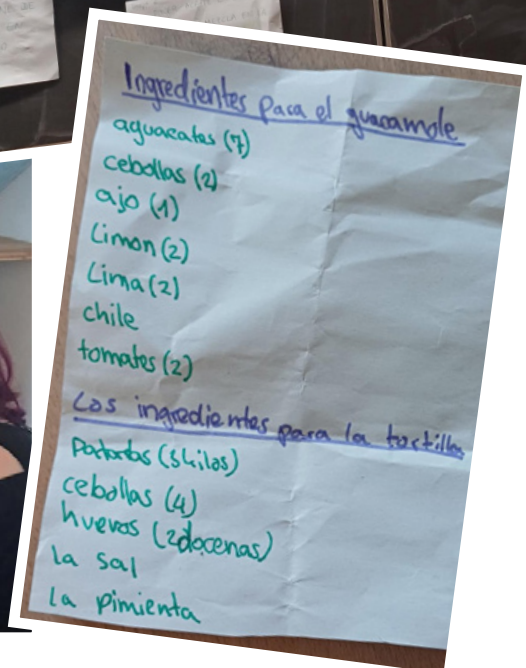 Ingredientes para el guacamole
aguacates (7)
cebollas (2)
ajo (1)
Limon (2)
Lima (2)
chile
tomates (2)
Los ingredientes para la tortilla
Patatas (3kilos)
cebollas (4)
huevos (2docenas)
la sal
la pimienta